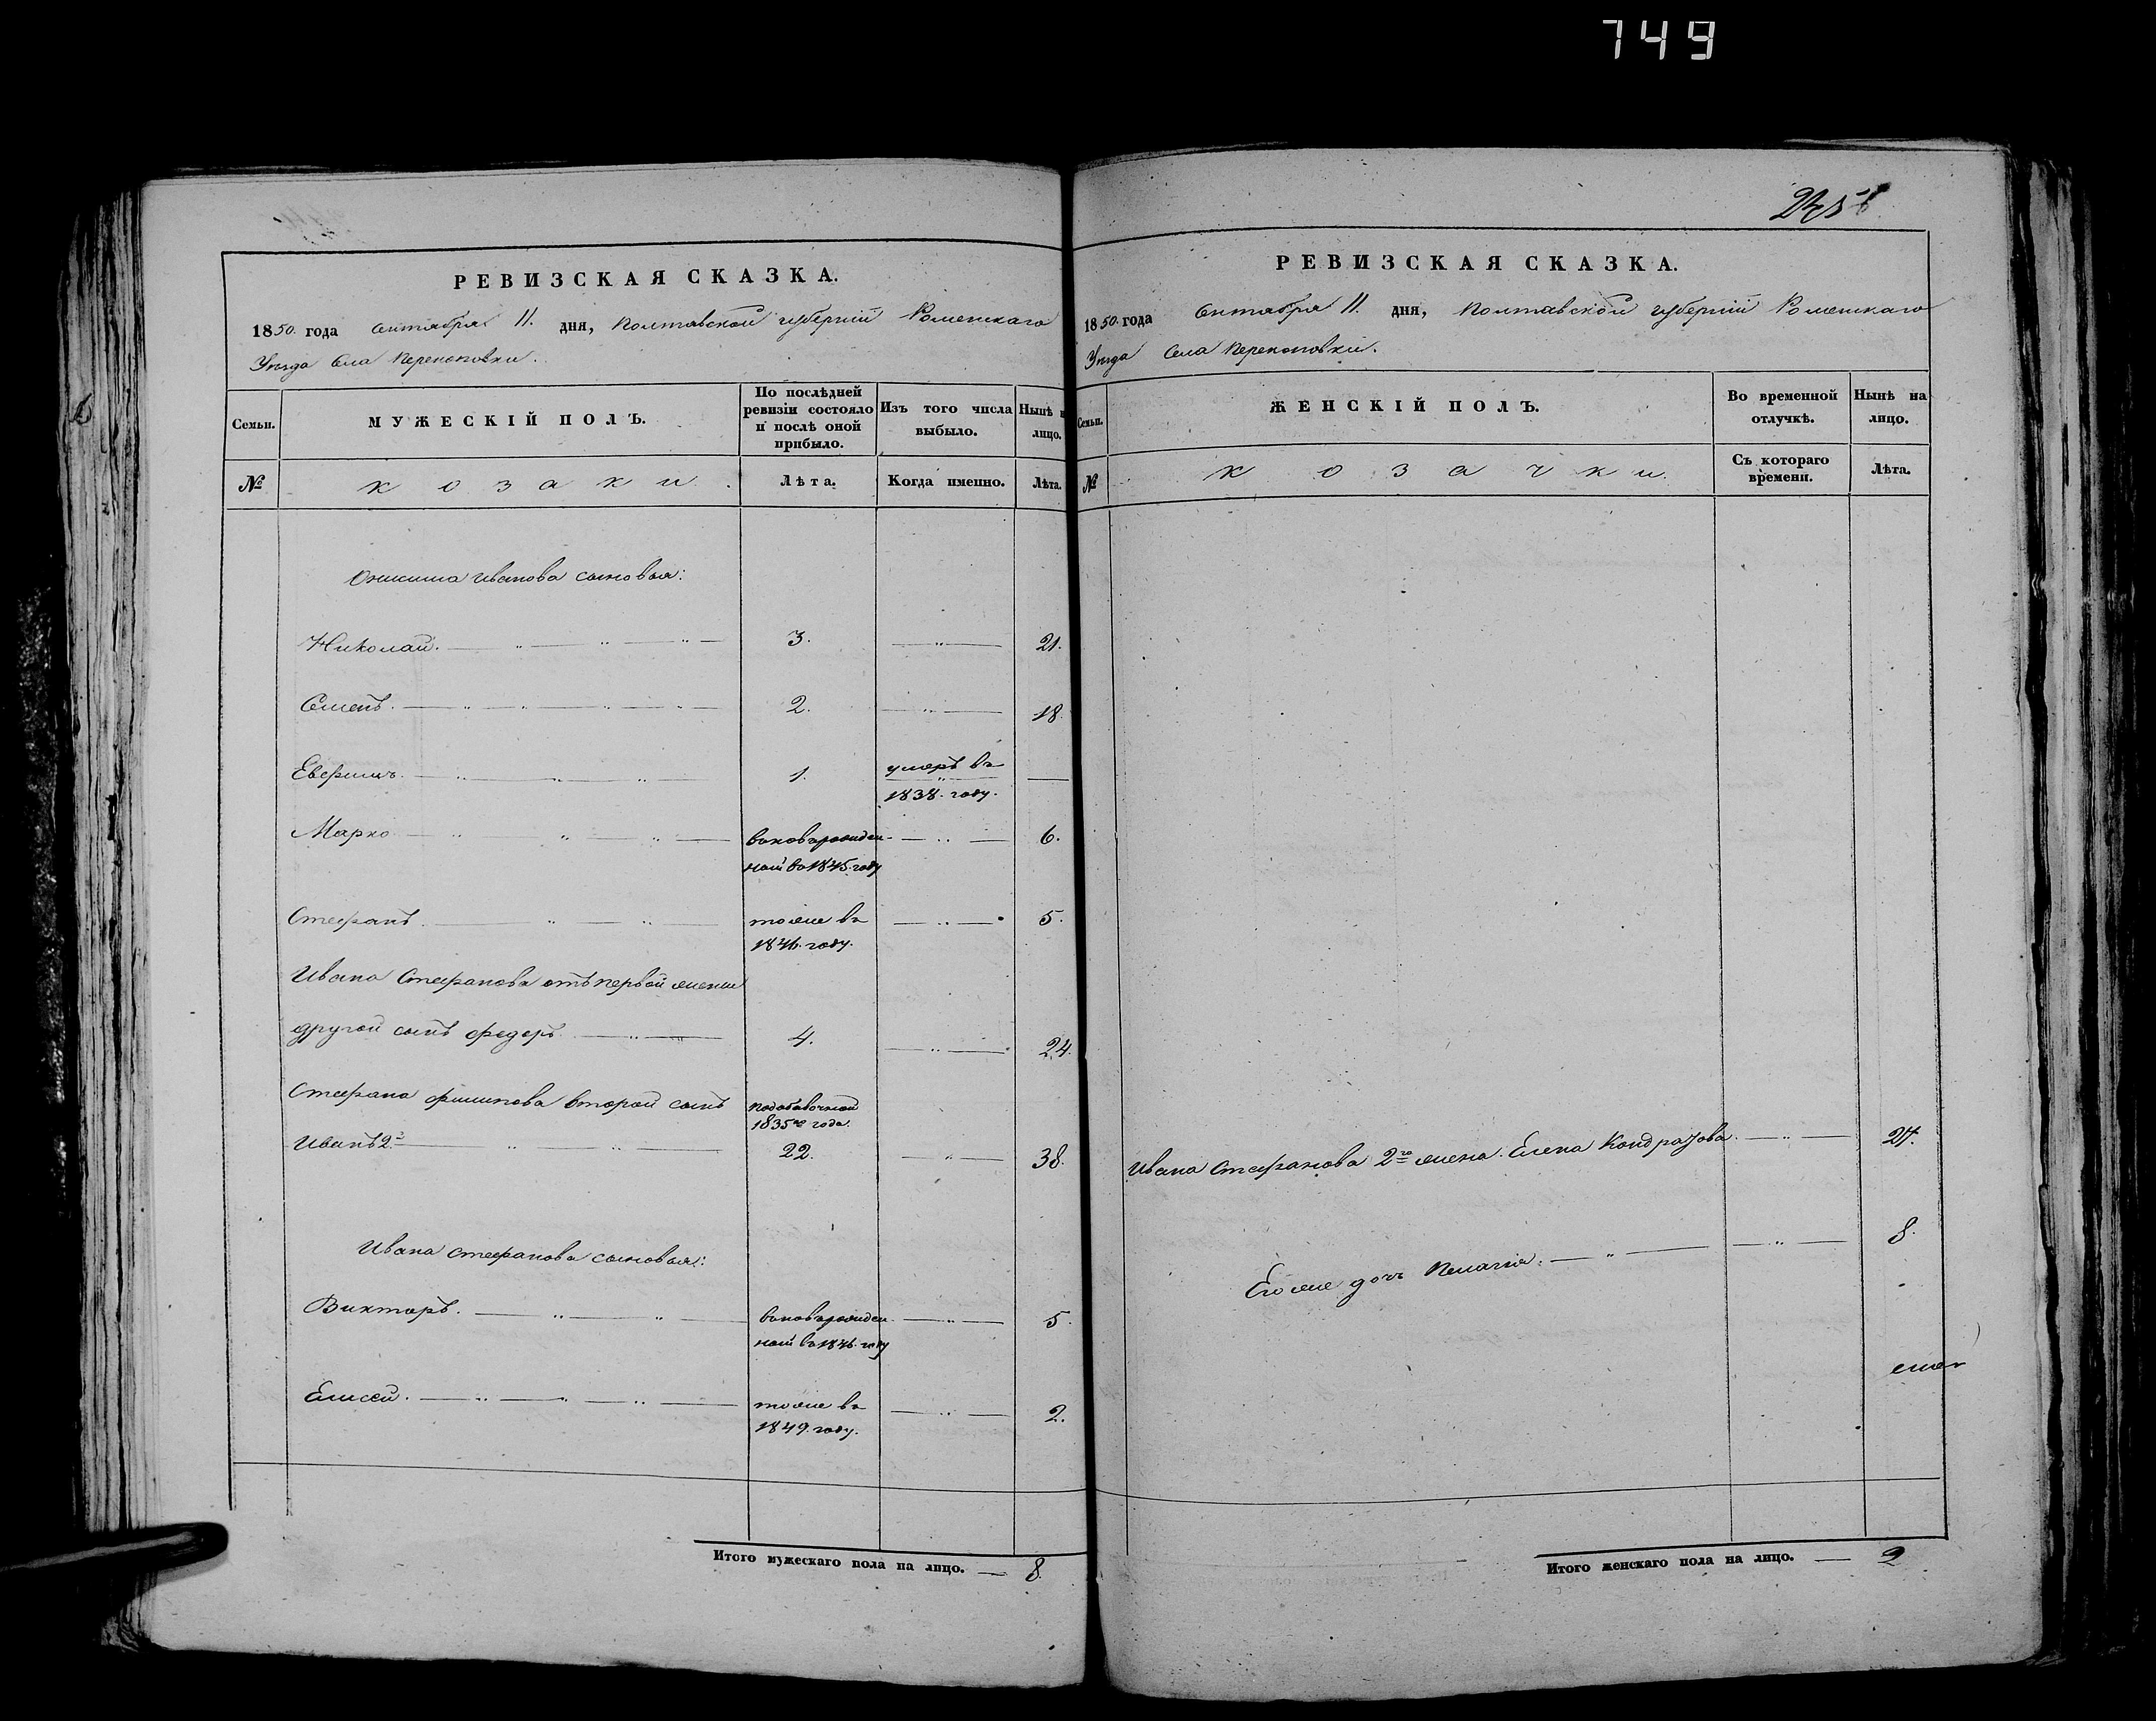 749
РЕВИЗСКАЯ СКАЗКА.
1850. года Октября 11. дня, Полтавской губерніи Роменскаго
Уѣзда Села Перекоповки.
Семьи.
МУЖЕСКІЙ ПОЛЪ.
По послѣдней ревизіи состояло и послѣ оной прибыло.
Изъ того числа выбыло.
Нынѣ н лицо.
№
козаки.
Лѣта.
Когда именно.
Лѣта.
Онисима Иванова сыновья:
Николай. 3. 21.
Семенъ. 2. 18.
1. умеръ въ 1838. году.
Марко вновьрожден-ной въ 1845. году 6.
Стефанъ. тоже въ 1846. году. 5.
Ивана Стефанова отъ первой жены
другой сынъ Федоръ. 4. 24.
Стефана Филипова второй сынъ
Иванъ 2й подобавочной 1835го года. 22. 38.
Ивана Стефанова сыновья:
Викторъ. вновьрожден-ной въ 1846. году 5.
Елисей. тоже въ 1849. году. 2.
Итого мужескаго пола на лицо. 8.
РЕВИЗСКАЯ СКАЗКА.
1850. года Октября 11. дня, Полтавской губерніи Роменскаго
Уѣзда Села Перекоповки.
Семьи.
ЖЕНСКІЙ ПОЛЪ.
Во временной отлучкѣ.
Нынѣ на лицо.
№
козачки.
Съ котораго времени.
Лѣта.
Ивана Стефанова 2го жена Елена Кондратова. 27.
Его же дочь Пелагія. 8.
Итого женскаго пола на лицо. 2